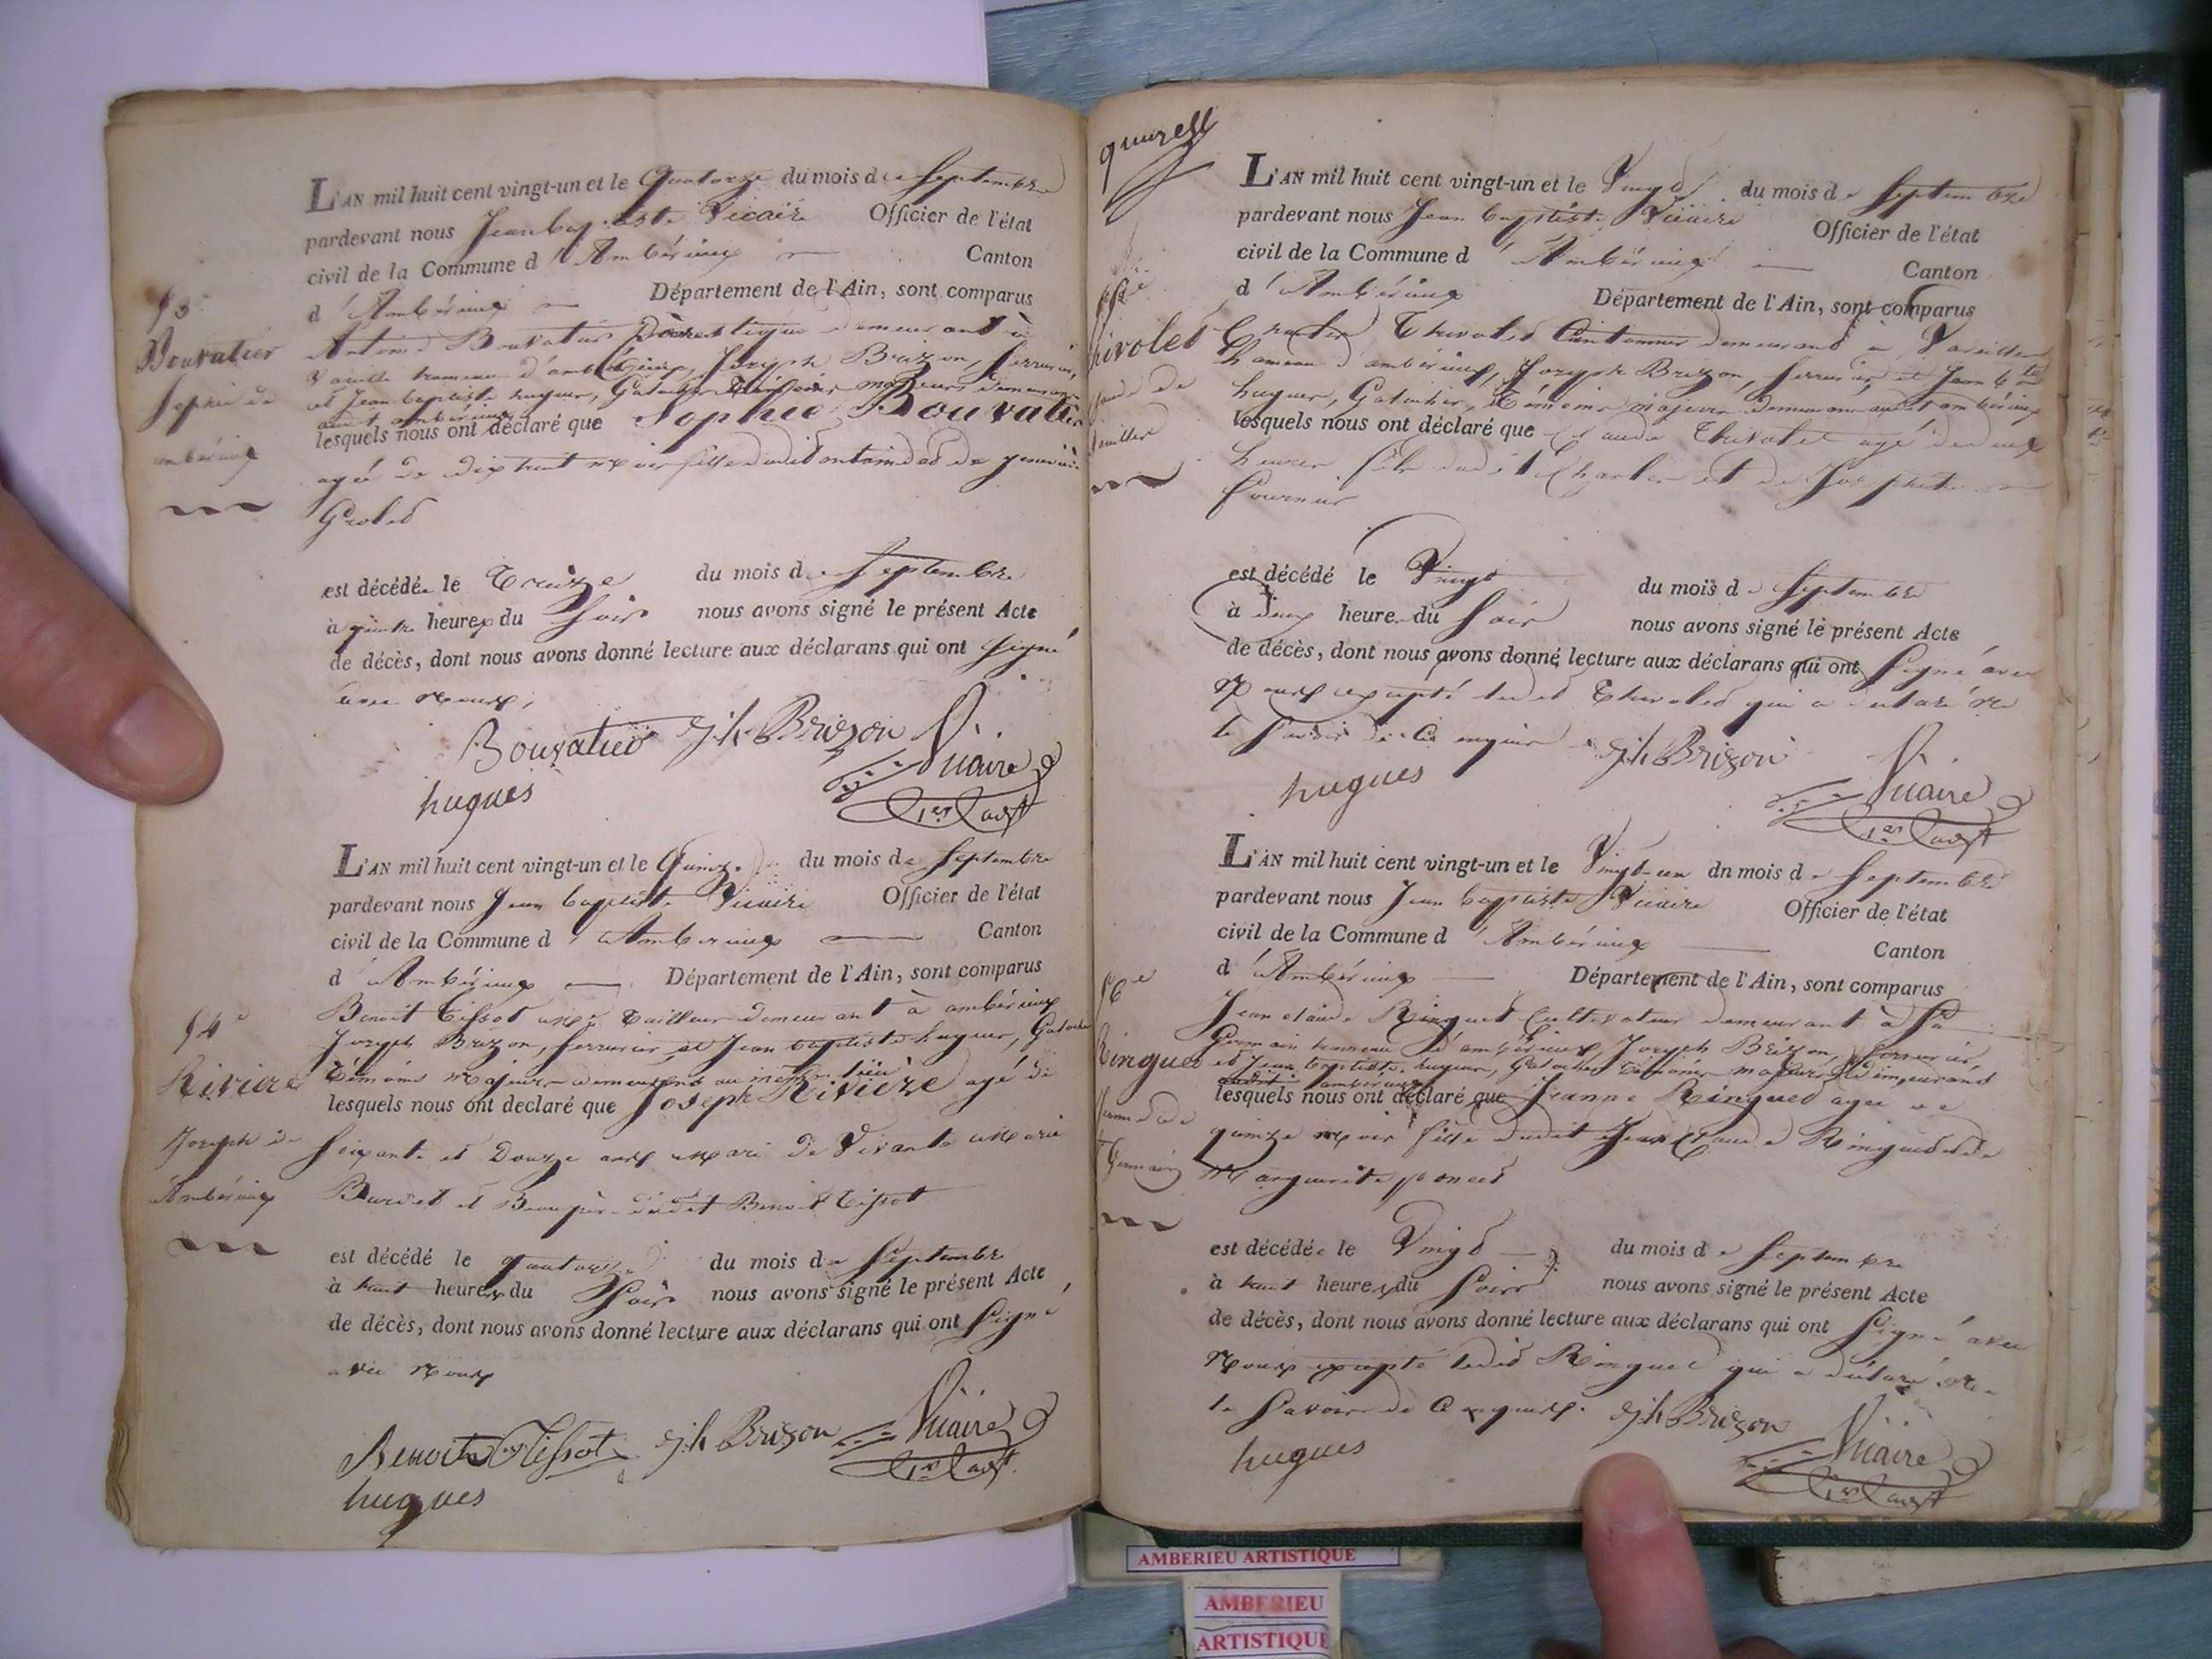 L'AN mil huit cent vingt-un et le Quatorze du mois de Septembre
pardevant nous Jean baptiste Vicaire Officier de l'état
civil de la Commune d'Ambérieux Canton
d'Ambérieux Département de l'Ain, sont comparus
53e
Bouvatier
Sophie de
ambérieux
Antoine Bouvatier demeurant à
Vareille hameau d'ambérieux, Joseph Brizon, Serrurier,
et Jean baptiste hugues, Galocher Témoins majeurs demeurant
audit ambérieux
lesquels nous ont déclaré que Sophie Bouvatier
agée de dix huit mois fille dudit antoine et de
Grolet
est décédée le Treize du mois de Septembre
à quatre heures du Soir nous avons signé le présent Acte
de décès, dont nous avons donné lecture aux déclarans qui ont Signé
avec nous,
Bouvatier Jh Brizon Vicaire
hugues 1er adjt
L'AN mil huit cent vingt-un et le Quinze du mois de Septembre
pardevant nous Jean baptiste Vicaire Officier de l'état
civil de la Commune d'Ambérieux Canton
d'Ambérieux Département de l'Ain, sont comparus
54e
Riviere
Joseph de
Ambérieux
Benoit Tissot Tailleur demeurant à ambérieux
Joseph Brizon, Serrurier, et Jean baptiste hugues, Galocher
Témoins majeurs demeurant au même lieu
lesquels nous ont declaré que Joseph Riviere agé de
Soixante et Douze ans mari de Vivante Marie
Burdet et Beaupère dudit Benoit Tissot
est décédé le quatorze du mois de Septembre
à huit heures du Soir nous avons signé le présent Acte
de décès, dont nous avons donné lecture aux déclarans qui ont Signé
avec nous
Benoit Tissot Jh Brizon Vicaire
hugues 1er adjt
L'AN mil huit cent vingt-un et le Vingt du mois de Septembre
pardevant nous Jean baptiste Vicaire Officier de l'état
civil de la Commune d'Ambérieux Canton
d'Ambérieux Département de l'Ain, sont comparus
55e
hivolet
aude de
areilles
Charles Thivolet Cantonnier demeurant à Vareilles
hameau d'ambérieux, Joseph Brizon, Serrurier et Jean bte
hugues, Galocher, Témoins majeurs demeurant audit ambérieux
lesquels nous ont déclaré que Claude Thivolet agé de deux
heures fils dudit Charles et de Josephte
Fournier
est décédé le Vingt du mois de Septembre
à deux heure du Soir nous avons signé le présent Acte
de décès, dont nous avons donné lecture aux déclarans qui ont Signé avec
Nous excepté ledit Thivolet qui a déclaré ne
le Savoir de Ce enquis Jh Brizon Vicaire
hugues 1er adjt
L'AN mil huit cent vingt-un et le Vingt-un dn mois de Septembre
pardevant nous Jean baptiste Vicaire Officier de l'état
civil de la Commune d'Ambérieux Canton
d'Ambérieux Département de l'Ain, sont comparus
56e
Ringuet
St Germain
Jean claude Ringuet Cultivateur demeurant à St
Germain hameau d'ambérieux, Joseph Brizon, Serrurier,
et Jean baptiste hugues, Galocher Témoins majeurs, demeurant
audit ambérieux
lesquels nous ont déclaré que Jeanne Ringuet agée de
quinze mois fille dudit Jean Claude Ringuet et de
Marguerite poncet
est décédée le Vingt du mois de Septembre
à huit heures du Soir nous avons signé le présent Acte
de décès, dont nous avons donné lecture aux déclarans qui ont Signé avec
Nous excepté ledit Ringuet qui a déclaré ne
le Savoir de Ce enquis. Jh Brizon Vicaire
hugues 1er adjt
AMBERIEU ARTISTIQUE
AMBERIEU
ARTISTIQUE